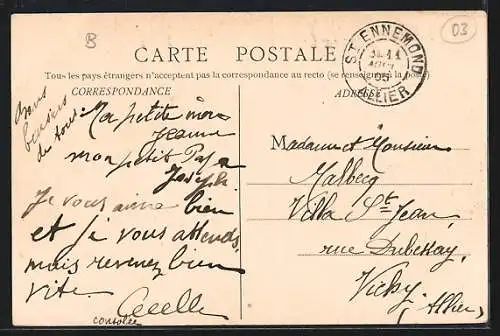 B
03
CARTE POSTALE
Tous les pays étrangers n'acceptent pas la correspondance au recto (se renseigner à la poste)
CORRESPONDANCE
ADRESSE
ST ENNEMOND
05
ALLIER
bons
baisers
de tous
Ma petite mère
Jeanne
mon petit Papa
Joseph.
Je vous aime bien
et je vous attends,
mais revenez bien
vite.
consolée
Madame et Monsieur
Malbecq
Villa St Jean,
rue Dubessay,
Vichy
(Allier)